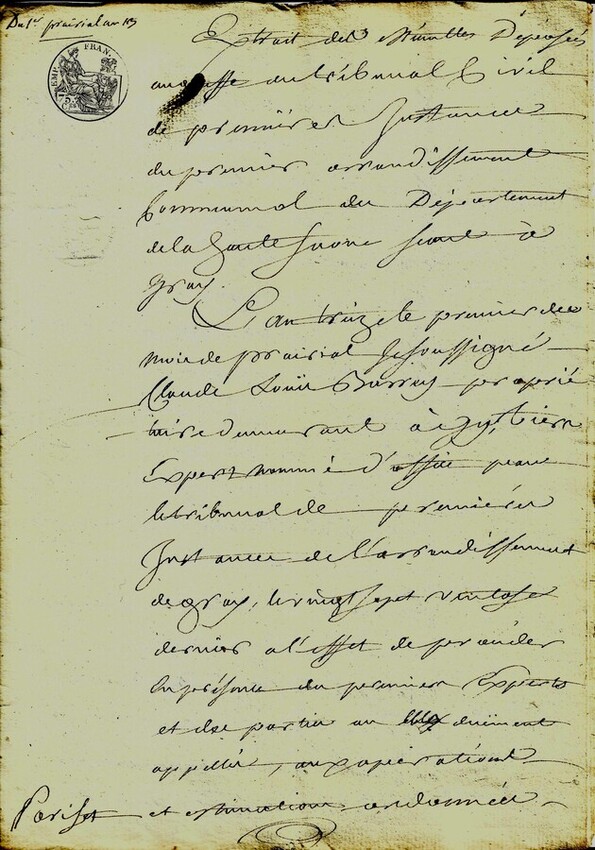 Du 1er prairial an 13
EMP. FRAN.
Extrait des Minuttes Déposés
au greffe du tribunal Civil
de premiere Instance
du premier arrondissement
Communal du Département
de la haute Saone séant à
Gray.
L'an treize le premier du
mois de prairial Je soussigné
Claude Louis proprié
taire demeurant à
Expert nommé d'office par
le tribunal de premiere
Instance de l'arrondissement
de gray, le vingt sept ventose
dernier a l'effet de procéder
en présence du premier Experts
et des parties ou duement
appellées, aux opérations
Pariset et estimations ordonnées